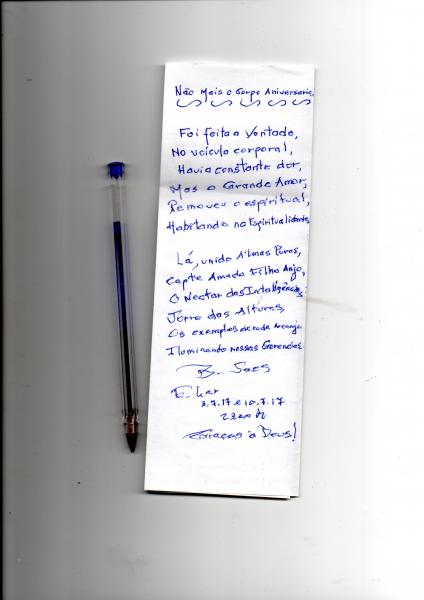 Não Mais o Corpo Aniversaria.
Foi feita a Vontade,
No veículo corporal,
Havia constante dor,
Mas o Grande Amor,
Removeu o espiritual,
Habitando na Espiritualidade.
Lá, unido Almas Puras,
Capte Amado Filho Anjo,
O Nectar das Inteligências,
Jorro das Alturas,
Os exemplos de cada Arcanjo
Iluminando nossas Gerências.
B. Saes
E. Lar
3.7.17 e 10.7.17
Graças a Deus!